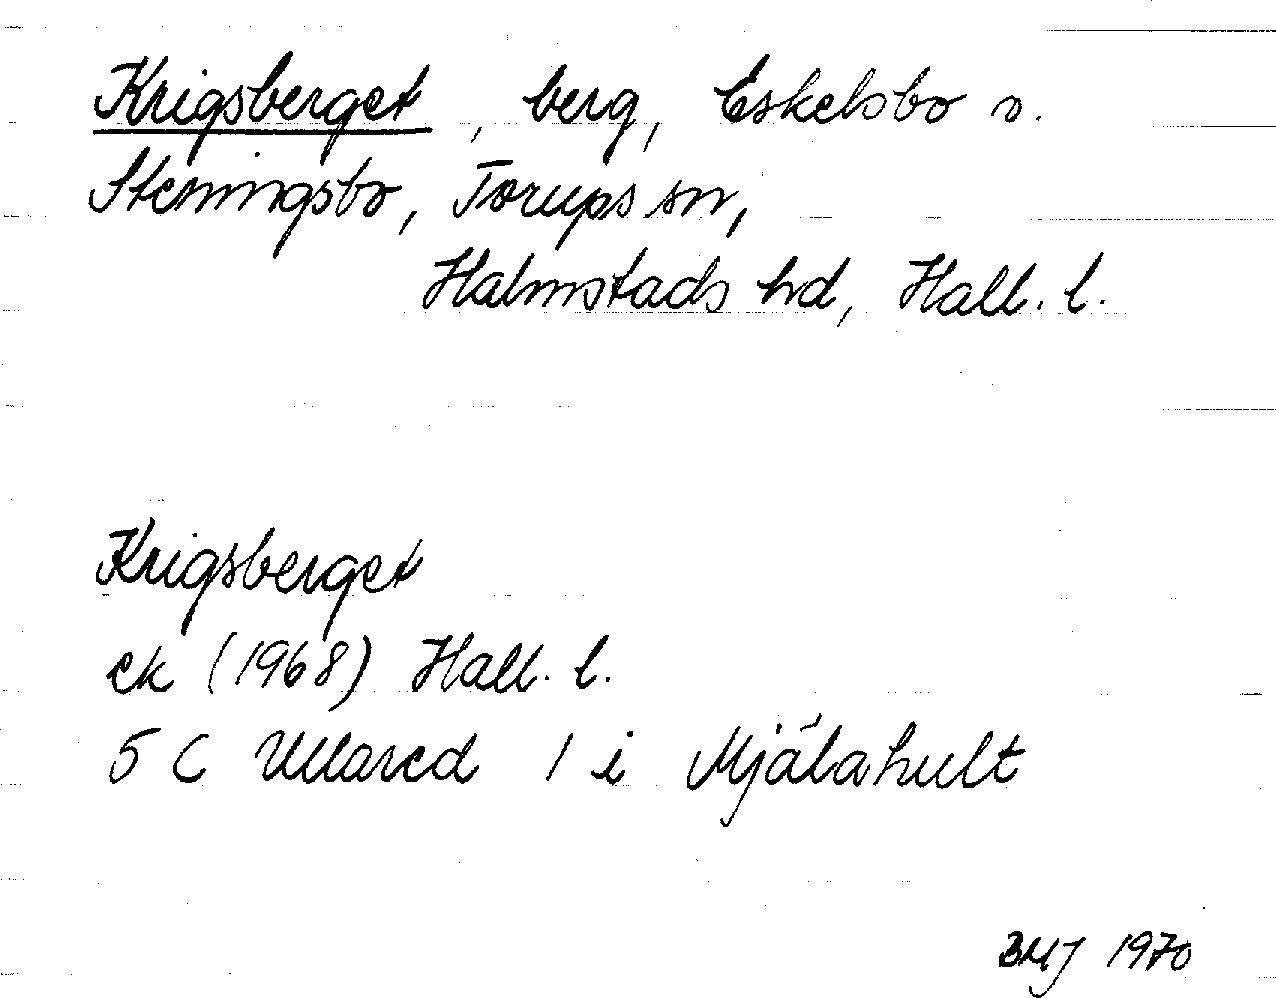 Krigsberget, berg, Eskelsbo o.
Steningsbo, Torups sn,
Halmstads hd, Hall. l.
Krigsberget
ek (1968) Hall. l.
5 C Ullared 1 i Mjälahult
BMJ 1970